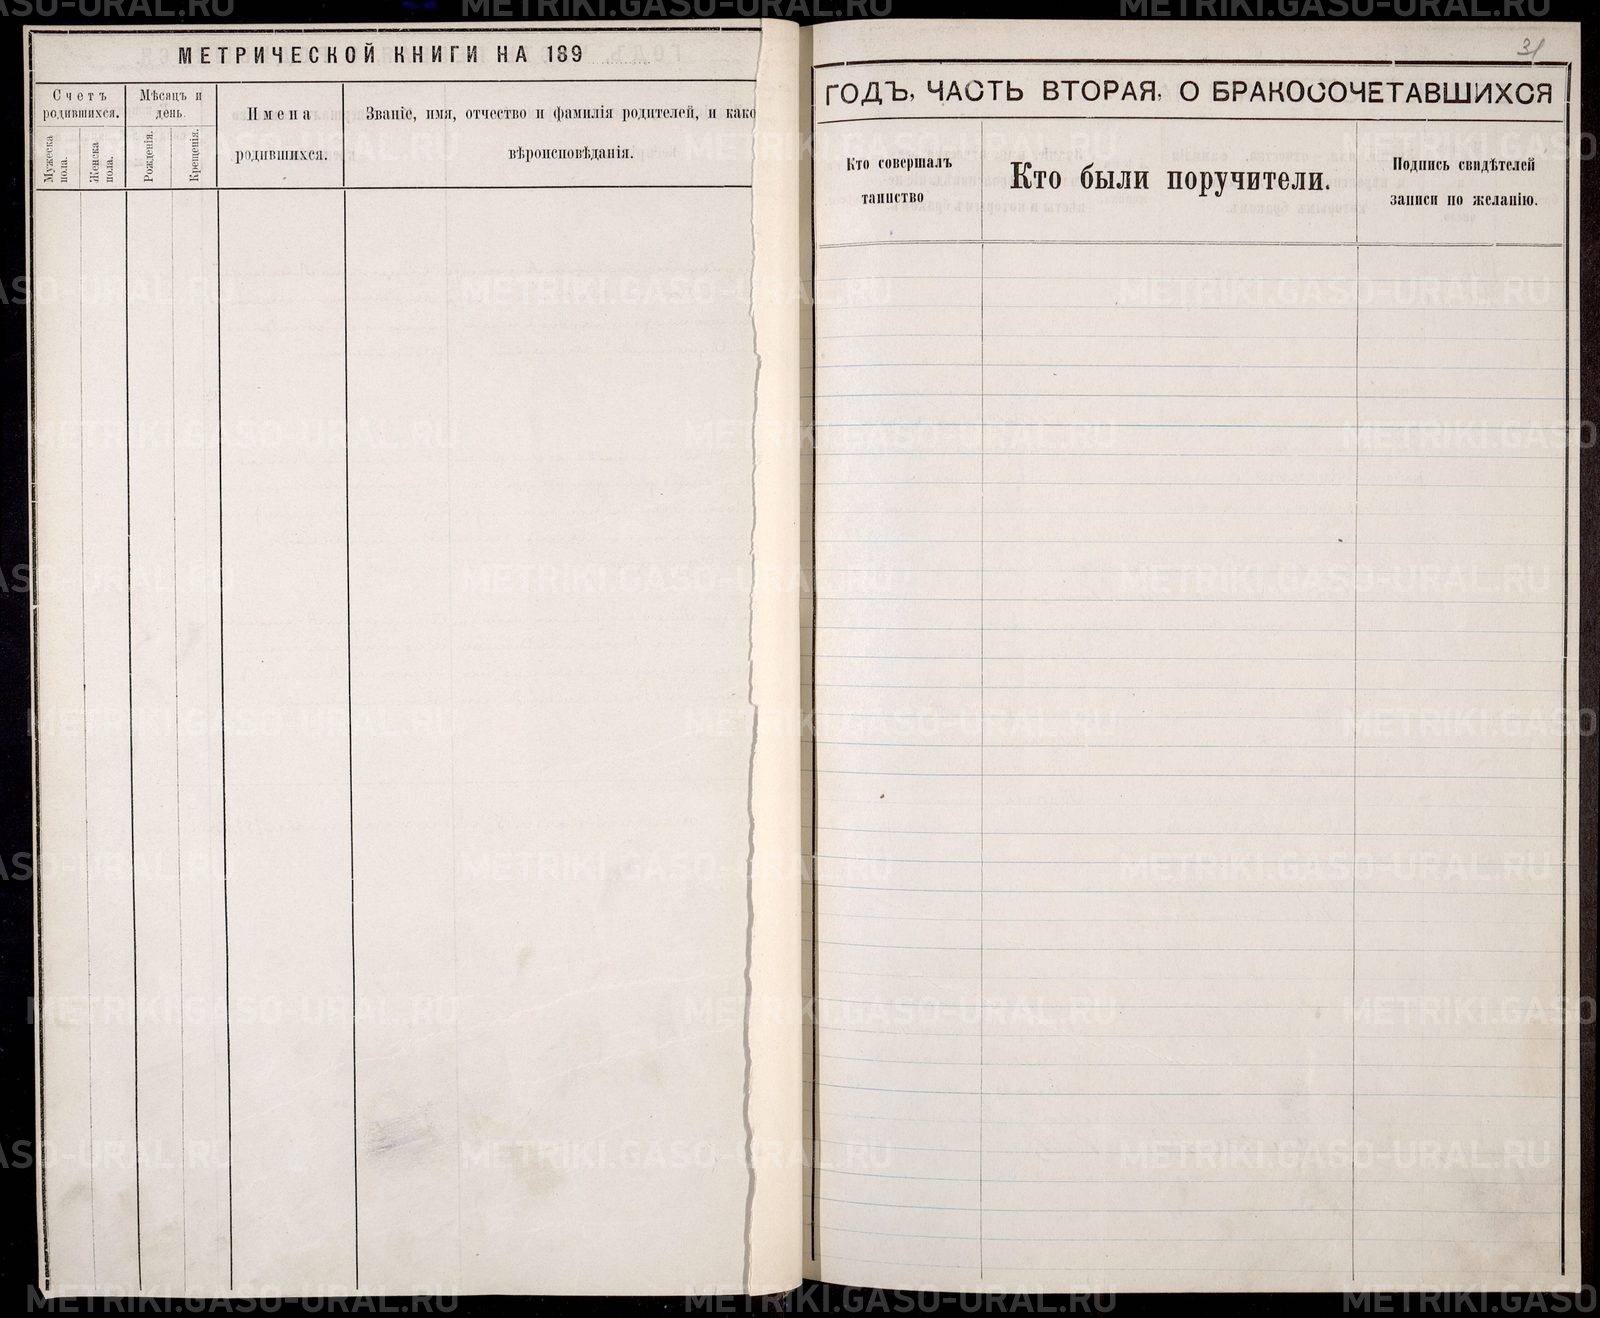 МЕТРИЧЕСКОЙ КНИГИ НА 189
Счетъ
родившихся.
Мужеска
пола.
Женска
пола.
Мѣсяцъ и
день.
Рожденія.
Крещенія.
Имена
родившихся.
Званіе, имя, отчество и фамилія родителей, и како
вѣроисповѣданія.
31
ГОДЪ, ЧАСТЬ ВТОРАЯ, О БРАКОСОЧЕТАВШИХСЯ
Кто совершалъ
таинство
Кто были поручители.
Подпись свидѣтелей
записи по желанію.
METRIKI.GASO-URAL.RU